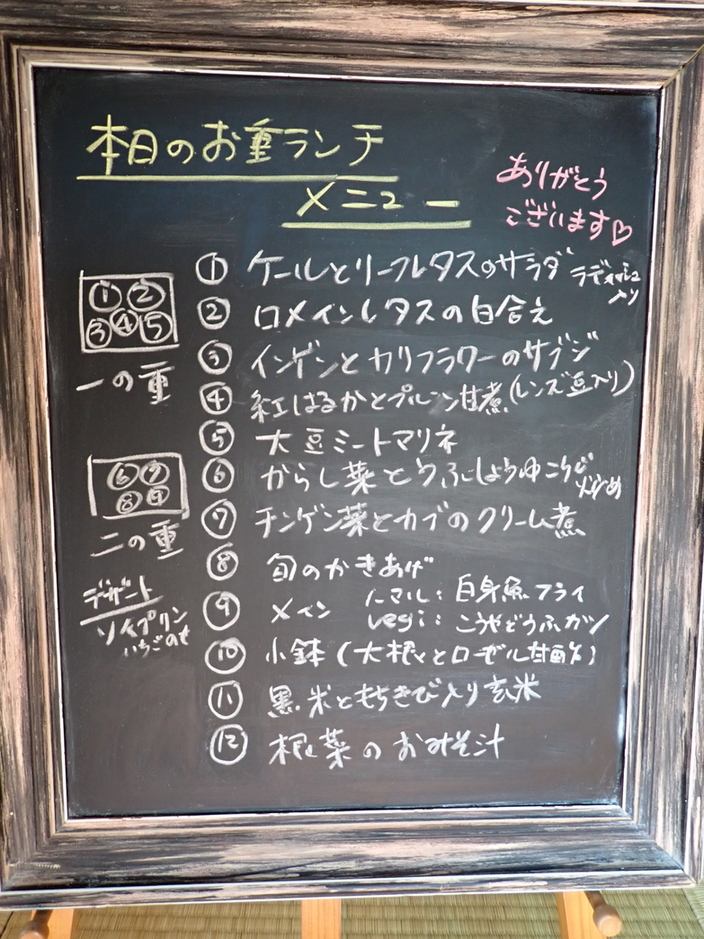 本日のお重ランチ
メニュー
ありがとう
ございます♡
① ケールとリーフレタスのサラダ ラディッシュ入り
② ロメインレタスの白合え
③ インゲンとカリフラワーのサブジ
④ 紅はるかとプルーン甘煮(レンズ豆入り)
⑤ 大豆ミートマリネ
⑥ からし菜とうふしょうゆこうじ炒め
⑦ チンゲン菜とカブのクリーム煮
⑧ 旬のかきあげ
⑨ メイン ノーマル: 白身魚フライ
Vegi: こうやどうふカツ
⑩ 小鉢(大根とローゼル甘酢)
⑪ 黒米ともちきび入り玄米
⑫ 根菜のおみそ汁
① ②
③ ④ ⑤
一の重
⑥ ⑦
⑧ ⑨
二の重
デザート
ソイプリン
いちごのせ